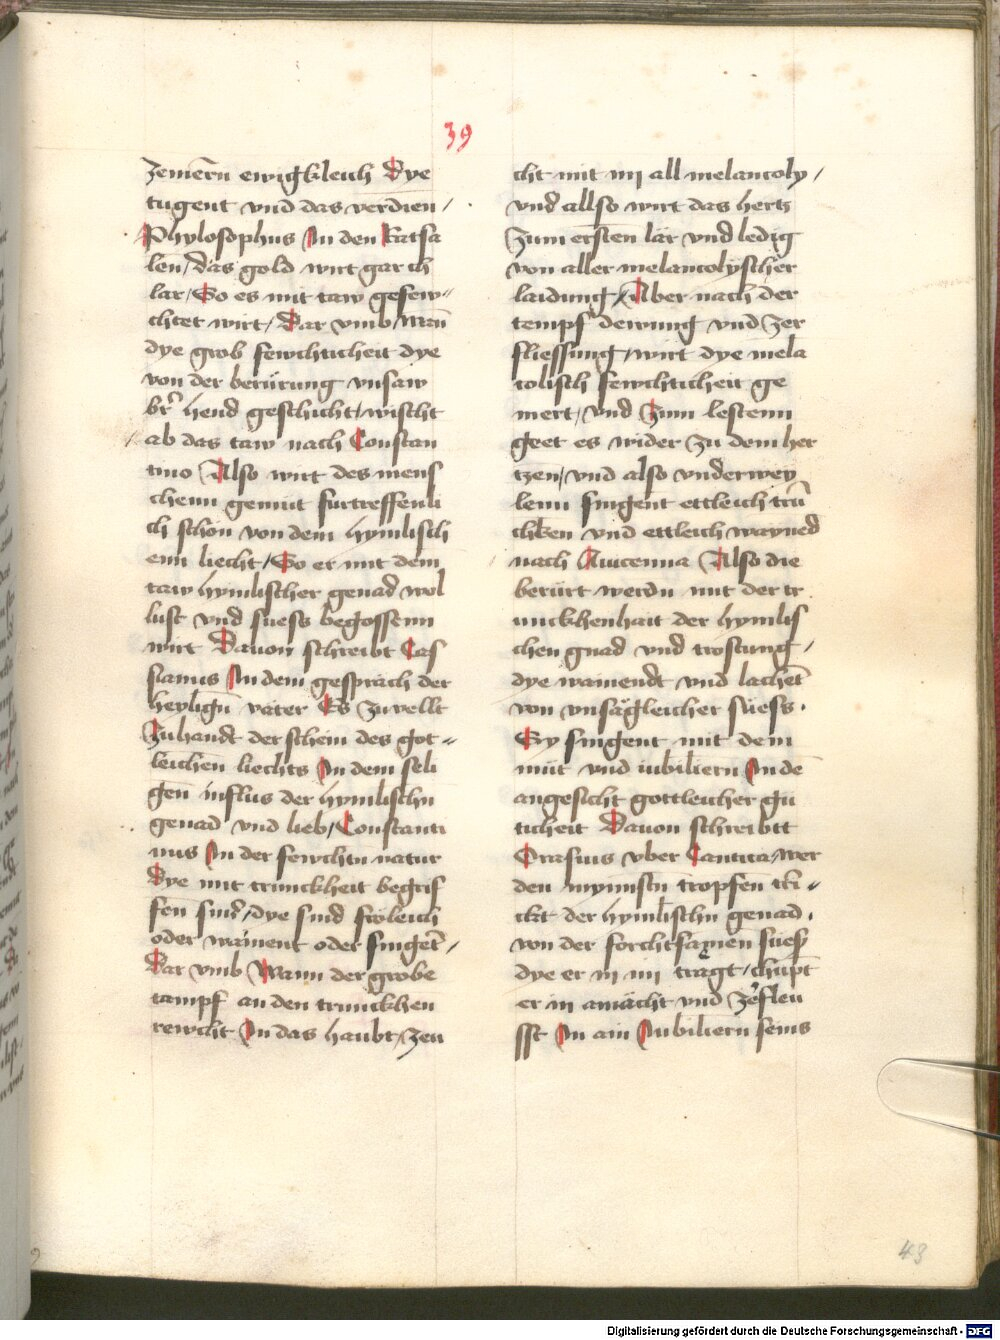 39
zemern̄ ewigkleich Dye
tugent vnd das verdien /
Phylosophus In den Ratsa
len / das gold wirt gar cl
lar / So es mit taw gefew=
chtet wirt / Dar vmb / wan̄
dye grob fewchticheit dye
von der berürung vnsaw
br̄ hend geschicht / wischt
ab das taw nach Constan
tino Also wirt des mens
chenn gemüt fürtreffenli
ch schön von dem hymlisch
enn liecht / So er mit dem
taw hymlischer genad wol
lust vnd suess begossenn
wirt Dauon schreibt Cas
sianus In dem gespräch der
heylign̄ väter Es zuvellt
Zuhandt der schein des got=
leichen liechts In dem seli
gen̄ influs der hymlischn̄
genad vnd lieb / Constanti
nus In der fewchtn̄ natur
Dye mit trunckheit begrif
fen sind / dye sind fröleich
oder wainent oder singet̄ /
Dar vmb Wann der grobe
tampf an den trunckhen
rewcht In das haubt / zeu
cht mit im all melancoly /
vnd allso wirt das hertz
Zum ersten lär vnd ledig
von aller melancolyscher
laidung / Aber nach der
tempf dewung vnd zer
fliessung / wirt dye mela
colisch fewchticheit ge
mert / vnd Zum lestenn
geet es wider zu dem her
tzen / vnd also vnderwey
lenn singent ettleich trū
chken vnd ettleich wayned
nach Auicenna Also die
berürt werdn̄ mit der tr
unckhenhait der hymlis
chen gnad vnd trostung /
dye wainendt vnd lachet̄
von vnsägleicher süess .
Sy singent mit dem
müt vnd iubiliern In dē
angesicht gottleicher gü
ticheit Dauon schreibtt
Orasius vber Cantica / wer
den mynnstn̄ tropfen tri=
ckt der hymlischn̄ genad .
von der forchtsamen süess
dye er in im trägt / chüpt̄
er in amächt vnd zerfleu
sst In ain Iubiliern seins
43
Digitalisierung gefördert durch die Deutsche Forschungsgemeinschaft - DFG